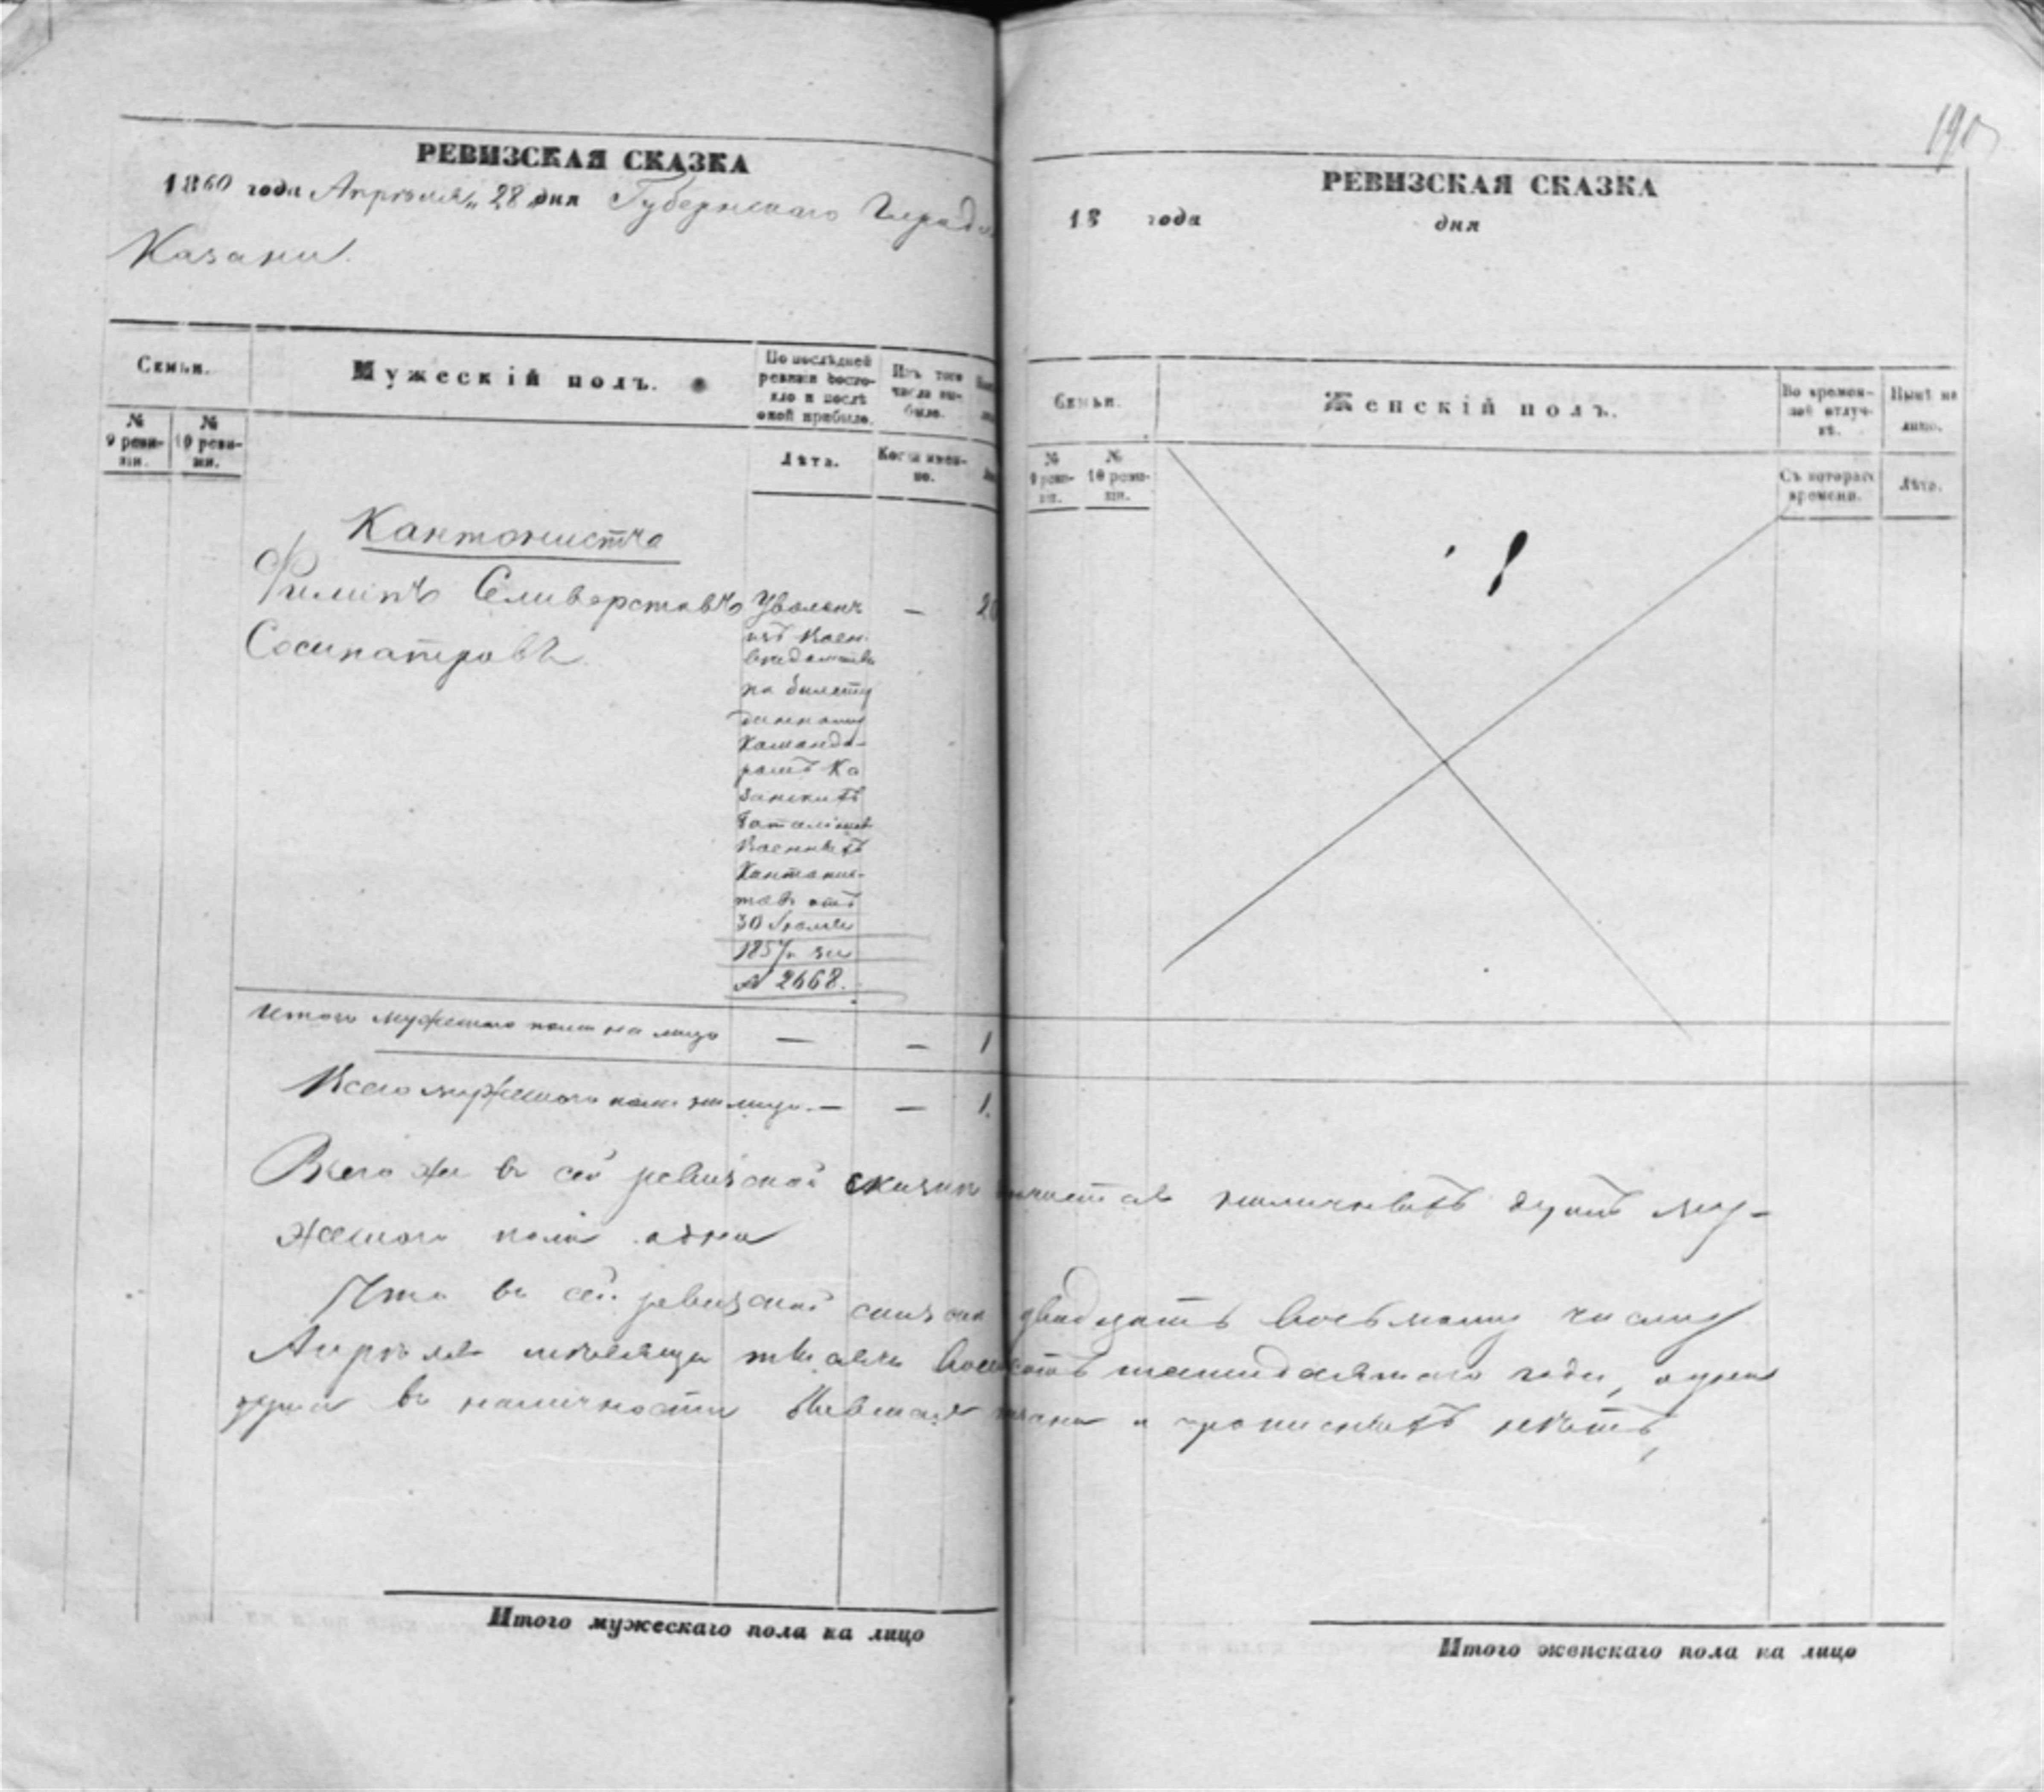 РЕВИЗСКАЯ СКАЗКА
1860 года Апрѣля „28 дня Губернскаго Города
Казани.
Семьи.
Мужескій полъ.
По послѣдней ревизіи состояло и послѣ оной прибыло.
Изъ того числа выбыло.
№ 9 ревизіи.
№ 10 ревизіи.
Лѣта.
Когда именно.
Кантонистъ
Филипъ Селиверстовъ
Сосипатровъ
Уволенъ
изъ Воен.
вѣдомства
по билету
данному
Команди-
ромъ Ка
занскихъ
баталіоновъ
Военныхъ
Кантонис-
товъ отъ
30 Іюля
1857 г. за
№ 2668.
— 20
Итого мужескаго пола на лицо — — 1
Всего мужескаго пола на лицо — — 1.
Всего же въ сей ревизской сказкѣ наличныхъ душъ му-
жескаго пола одна
Что въ сей ревизской сказкѣ двадцать восьмому числу
Апрѣля мѣсяца тысяча восемьсотъ шестидесятаго года, одна
душа въ наличности и прописныхъ нѣтъ,
Итого мужескаго пола на лицо
190
РЕВИЗСКАЯ СКАЗКА
18 года дня
Семьи.
Женскій полъ.
Во временной отлучкѣ.
Нынѣ на лицо.
№ 9 ревизіи.
№ 10 ревизіи.
Съ котораго времени.
Лѣта.
Итого женскаго пола на лицо